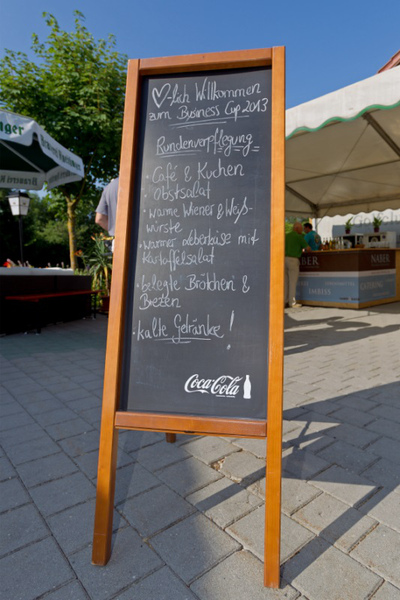 ♡-lich Willkommen
zum Business Cup 2013
Rundenverpflegung
· Café & Kuchen
· Obstsalat
· warme Wiener & Weiß-
würste
· warmer Leberkäse mit
Kartoffelsalat
· belegte Brötchen &
Brezen
· kalte Getränke!
Coca-Cola
NABER
NABER
CATERING